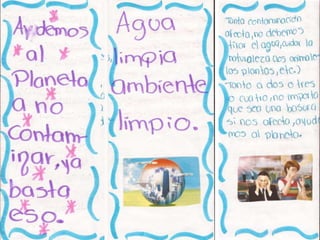 Ayudemos
al
Planeta
a no
contam-
inar, ya
basta
eso.
Agua
limpia
ambiente
limpio.
Tanta contaminación
afecta, no debemos
tirar el agua, cuidar la
naturaleza (los animales
las plantas, etc.)
Tanto a dos o tres
o cuatro, no importa
que sea una basura
si nos afecta, ayude
mos al planeta.